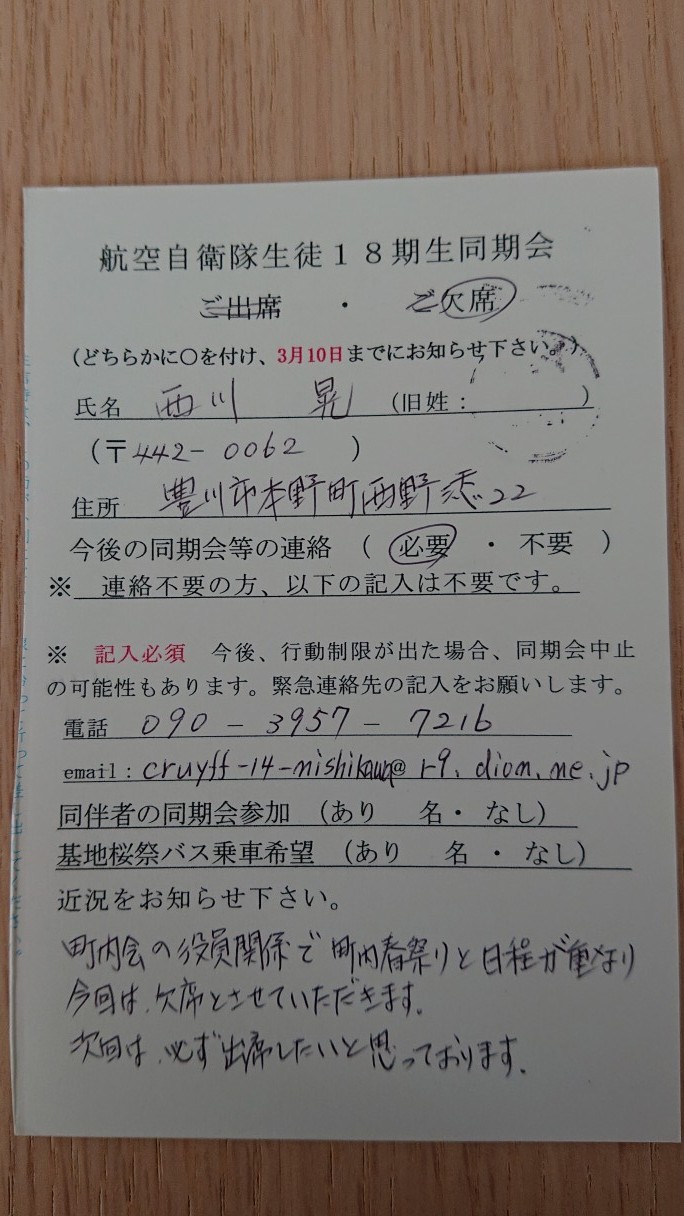 航空自衛隊生徒18期生同期会
ご出席 ・ ご欠席
(どちらかに○を付け、3月10日までにお知らせ下さい。)
氏名 西川 晃 (旧姓: )
(〒442-0062 )
住所 豊川市本野町西野添22
今後の同期会等の連絡 ( 必要 ・ 不要 )
※ 連絡不要の方、以下の記入は不要です。
※ 記入必須 今後、行動制限が出た場合、同期会中止
の可能性もあります。緊急連絡先の記入をお願いします。
電話 090-3957-7216
email: cruyff-14-nishikawa@r9.dion.ne.jp
同伴者の同期会参加 (あり 名・ なし)
基地桜祭バス乗車希望 (あり 名 ・ なし)
近況をお知らせ下さい。
町内会の役員関係で町内春祭りと日程が重なり
今回は、欠席とさせていただきます。
次回は、必ず出席したいと思っております。